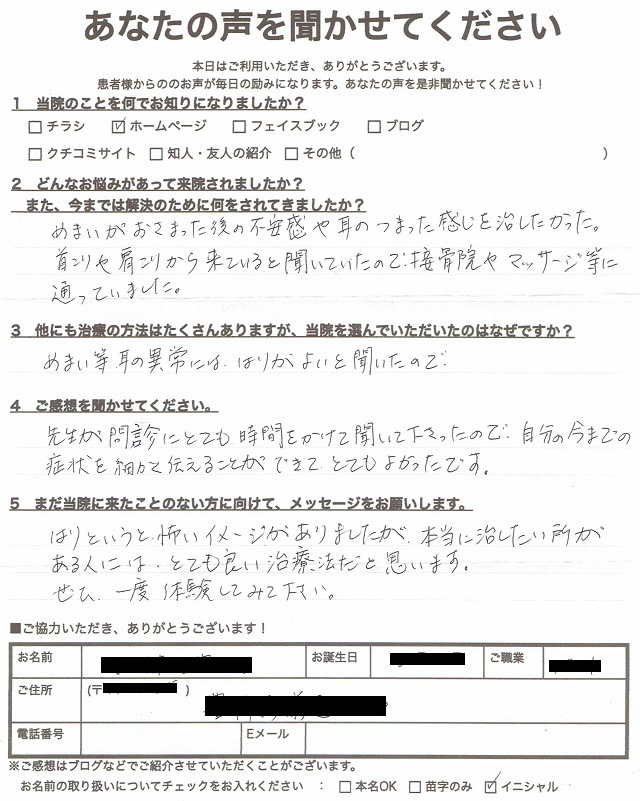 あなたの声を聞かせてください
本日はご利用いただき、ありがとうございます。
患者様からののお声が毎日の励みになります。あなたの声を是非聞かせてください！
1 当院のことを何でお知りになりましたか？
□ チラシ ☑ ホームページ □ フェイスブック □ ブログ
□ クチコミサイト □ 知人・友人の紹介 □ その他（ ）
2 どんなお悩みがあって来院されましたか？
また、今までは解決のために何をされてきましたか？
めまいがおさまった後の不安感や耳のつまった感じを治したかった。
首こりや肩こりから来ていると聞いていたので、接骨院やマッサージ等に
通っていました。
3 他にも治療の方法はたくさんありますが、当院を選んでいただいたのはなぜですか？
めまい等、耳の異常には、はりがよいと聞いたので
4 ご感想を聞かせてください。
先生が問診にとても時間をかけて聞いて下さったので、自分の今までの
症状を細かく伝えることができて、とてもよかったです。
5 まだ当院に来たことのない方に向けて、メッセージをお願いします。
はりというと、怖いイメージがありましたが、本当に治したい所が
ある人には、とても良い治療法だと思います。
ぜひ、一度体験してみて下さい。
■ご協力いただき、ありがとうございます！
お名前 お誕生日 ご職業
ご住所 (〒 )
電話番号 Eメール
※ご感想はブログなどでご紹介させていただくことがございます。
お名前の取り扱いについてチェックをお入れください ： □ 本名OK □ 苗字のみ ☑ イニシャル